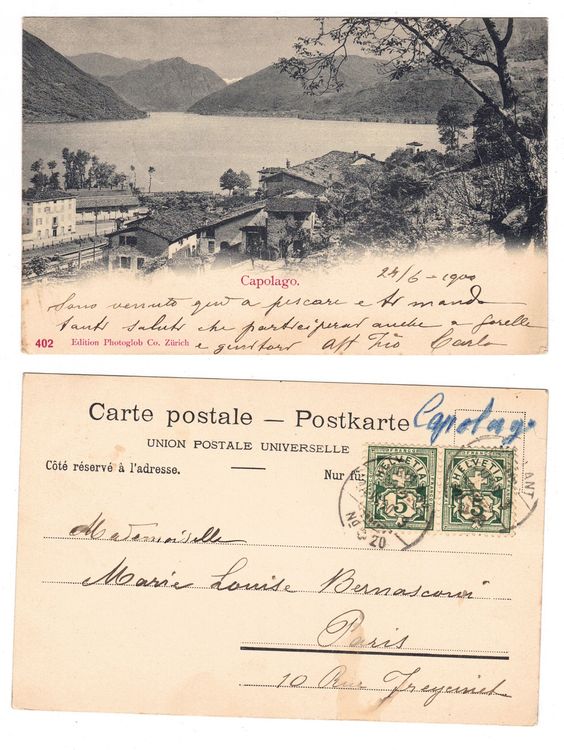 Capolago.
24/6 - 1900
Sono venuto qui a pescare e ti mando
tanti saluti che participerai anche a sorelle
e genitori Aff Zio Carlo
402 Edition Photoglob Co. Zürich
Carte postale — Postkarte
Capolago
UNION POSTALE UNIVERSELLE
Côté réservé à l'adresse.
Nur für
FRANCO
HELVETIA
5
FRANCO
HELVETIA
5
AMBULANT
Mademoiselle
Marie Louise Bernasconi
Paris
10 Rue Freycinet